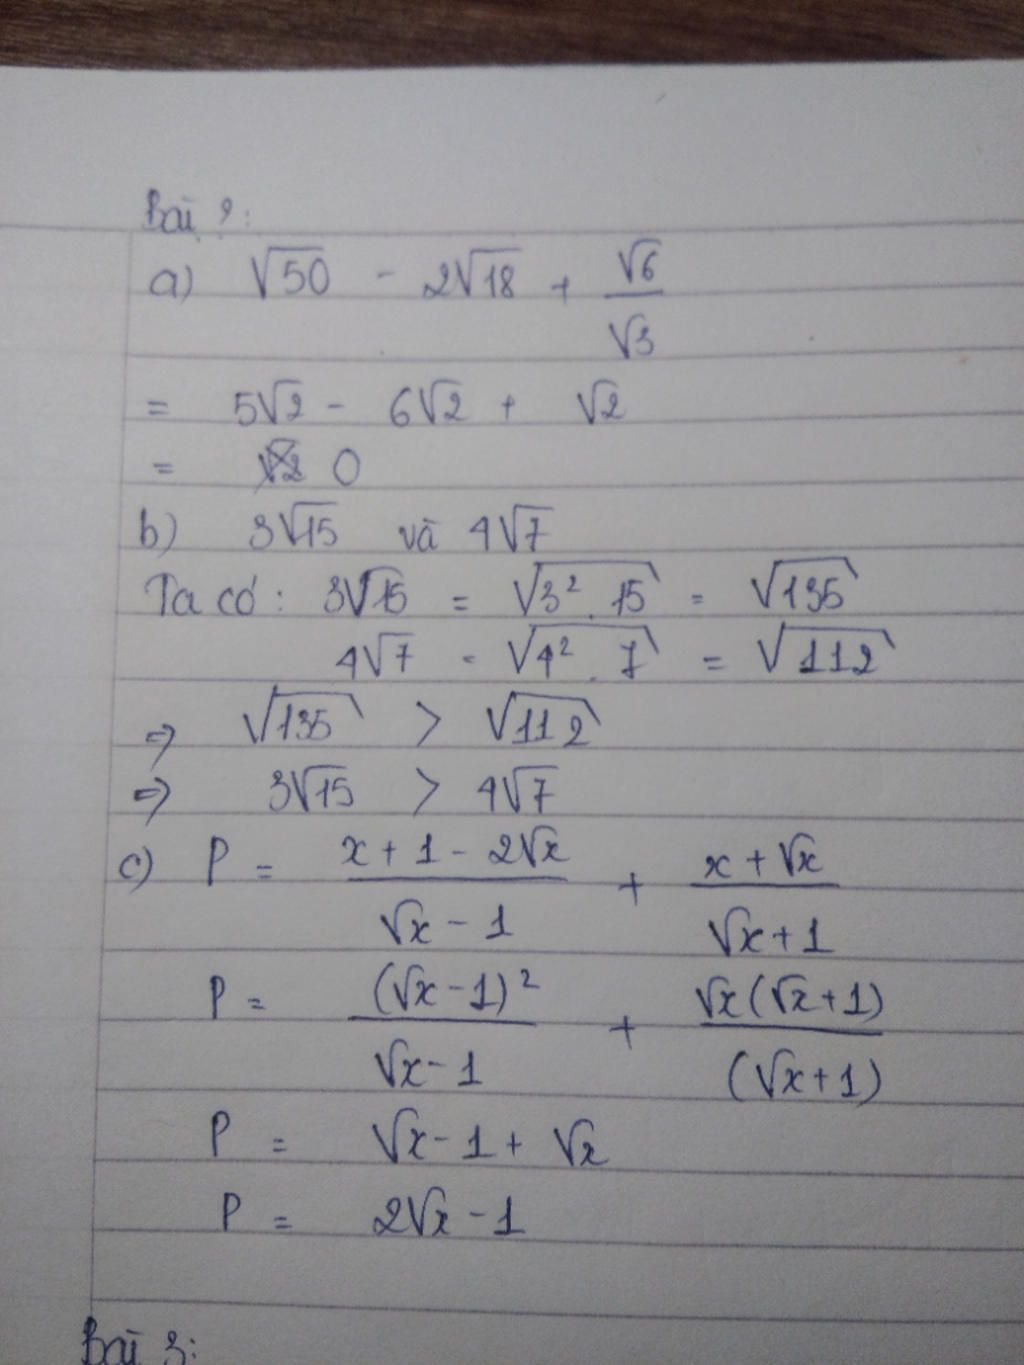 Bài 2:
a) √50 - 2√18 + √6/√3
= 5√2 - 6√2 + √2
= 0
b) 3√15 và 4√7
Ta có: 3√15 = √(3² . 15) = √135
4√7 = √(4² . 7) = √112
=> √135 > √112
=> 3√15 > 4√7
c) P = (x + 1 - 2√x)/(√x - 1) + (x + √x)/(√x + 1)
P = (√x - 1)²/(√x - 1) + √x(√x + 1)/(√x + 1)
P = √x - 1 + √x
P = 2√x - 1
Bài 3: